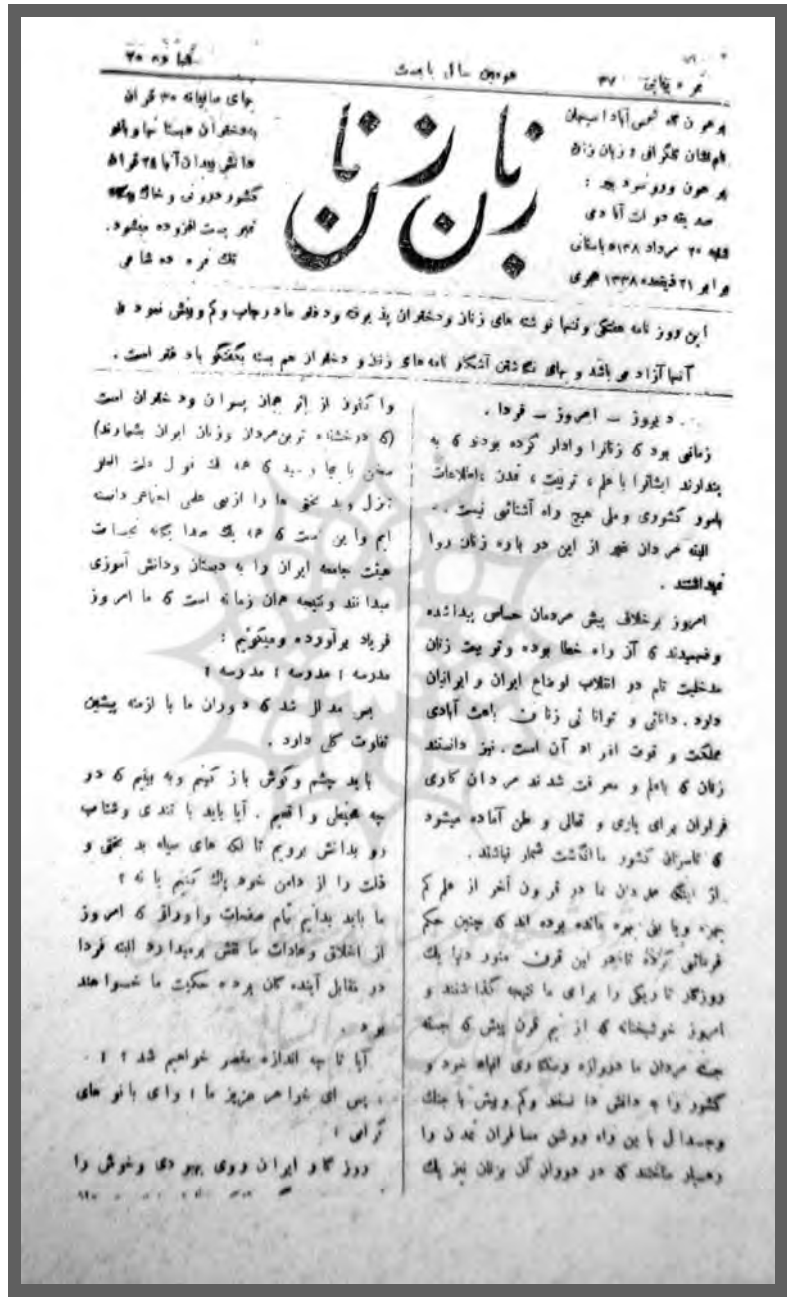 نمره پیاپی ۳۷
دومین سال باهمت
شماره ۲۵
پیرهون گاه شمس آباد اصفهان
نام نشان تلگرافی: زبان زنان
پیرهون ورو نمود پید:
صدیقه دولت آبادی
شنبه ۲۰ مرداد ۱۳۸ باستانی
برابر ۲۱ ذیقعده ۱۳۳۸ هجری
زبان زنان
بهای سالیانه ۳۰ قران
بدختران دبستانها و بانو
دانش پیدان آنها ۲۵ قران
کشور درونی و خاک بیگانه
تمبر پست افزوده میشود.
تک نمره ده شاهی
این روز نامه هفتگی و تنها نوشته های زنان و دختران پذیرفته و دفتر ما در چاپ و کم و بیش نمودن
آنها آزاد می باشد و بهای نگاشتن آشکار نامه های زنان و دختران هم بسته بگفتگو با دفتر است.
دیروز ـ امروز ـ فردا.
زمانی بود که زنانرا وادار کرده بودند که به
پندارند ایشانرا با علم، تربیت، تمدن، اطلاعات
بامور کشوری و ملی هیچ راه آشنائی نیست.
البته مردان غیر از این در باره زنان روا
نمیداشتند.
امروز برخلاف پیش مردمان حساس پیدا شده
و فهمیدند که آن راه خطا بوده و تربیت زنان
مدخلیت تام در انقلاب اوضاع ایران و ایرانیان
دارد. دانائی و توانائی زنان باعث آبادی
مملکت و قوت افراد آن است. نیز دانستند
زنان که با علم و معرفت شدند مردان کاری
فراوان برای یاری و تعالی وطن آماده میشود
که کاسران کشور ما انگشت شمار نباشند.
از اینکه مردان ما در قرون آخر از علم کم
بهره و یا بی بهره مانده بوده اند که چنین حکم
فرمائی کرده تا فجر این قرن منور دنیا یک
روزگار تاریکی را برای ما نتیجه گذاشتند و
امروز خوشبختانه که از نیم قرن پیش که جسته
جسته مردان ما دروازه رستکاری افراد خود و
کشور را به دانش دانستند و کم و بیش با جنگ
و جدال با این راه روشن مسافران تمدن را
رهسپار ساختند که در دوران آن بزنان نیز یک
و اکنون از اثر همان پسران و دختران است
(که درخشنده ترین مردان و زنان ایران بشمارند)
سخن با بجا رسید که همه یک قول ذلت العلو
تنزل و بد بختی ها را از بی علمی اجتماعی دانسته
ایم و این است که همه یک صدا یگانه نجات
هیئت جامعه ایران را به دبستان و دانش آموزی
میدانند و نتیجه همان زمانه است که ما امروز
فریاد برآورده و میگوئیم:
مدرسه! مدرسه! مدرسه!
پس مدلل شد که دوران ما با ازمنه پیشین
تفاوت کلی دارد.
باید چشم و گوش باز کنیم و به بینیم که در
چه محیطی واقعیم. آیا باید با تندی و شتاب
رو بدانش برویم تا لکه های سیاه بد بختی و
ذلت را از دامن خود پاک کنیم یا نه؟
ما باید بدانیم تمام صفحات و اوراقی که امروز
از اخلاق و عادات ما نقش برمیدارد البته فردا
در مقابل آینده گان پرده حکیت ما خواهند
بود.
آیا تا چه اندازه مقصر خواهیم شد؟!
پس ای خواهر عزیز ما! و ای بانو های
گرامی!
روزگار ایران روی بهبودی و خوش را